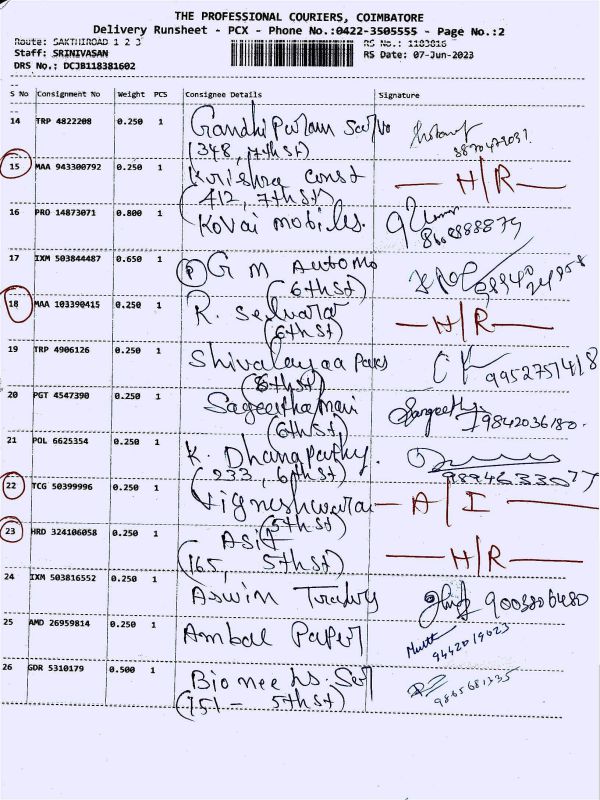 THE PROFESSIONAL COURIERS, COIMBATORE
Delivery Runsheet - PCX - Phone No.:0422-3505555 - Page No.:2
Route: SAKTHIROAD 1 2 3
RS No.: 1183816
Staff: SRINIVASAN
RS Date: 07-Jun-2023
DRS No.: DCJB118381602
S No Consignment No Weight PCS Consignee Details Signature
14 TRP 4822208 0.250 1 Gandhi Puram
(348, 7th st)
15 MAA 943300792 0.250 1 Krishna Const H/R
(412, 7th st)
16 PRO 14873071 0.800 1 Kovai mobiles.
17 IXM 503844487 0.650 1 (P) G M Automo
(6th st)
18 MAA 103390415 0.250 1 R. Selvaraj H/R
(6th st)
19 TRP 4906126 0.250 1 Shivalayaa 9952751418
(6th st)
20 PGT 4547390 0.250 1 Sangeetha 9842036180.
(6th st)
21 POL 6625354 0.250 1 K. Dhanapathy.
(233, 6th st)
22 TCG 50399996 0.250 1 Vigneshwara A/I
(5th st)
23 HRD 324106058 0.250 1 Asif H/R
(165, 5th st)
24 IXM 503816552 0.250 1 Aswin
25 AMD 26959814 0.250 1 Ambal Paper 9442019023
26 GDR 5310179 0.500 1 Bio 9865681335
(151 - 5th st)